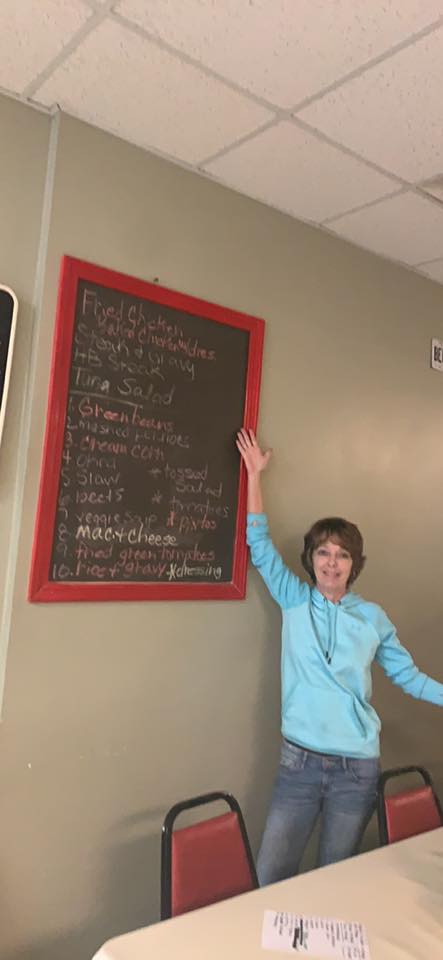 Fried Chicken
Baked Chicken w/dres.
Steak & Gravy
HB Steak
Tuna Salad
1. Green beans
2. mashed potatoes
3. cream corn
4 Okra
5 Slaw * tossed Salad
6 beets * tomatoes
7 veggie soup * pintos
8 mac + cheese
9 fried green tomatoes
10. rice + gravy * dressing
BE